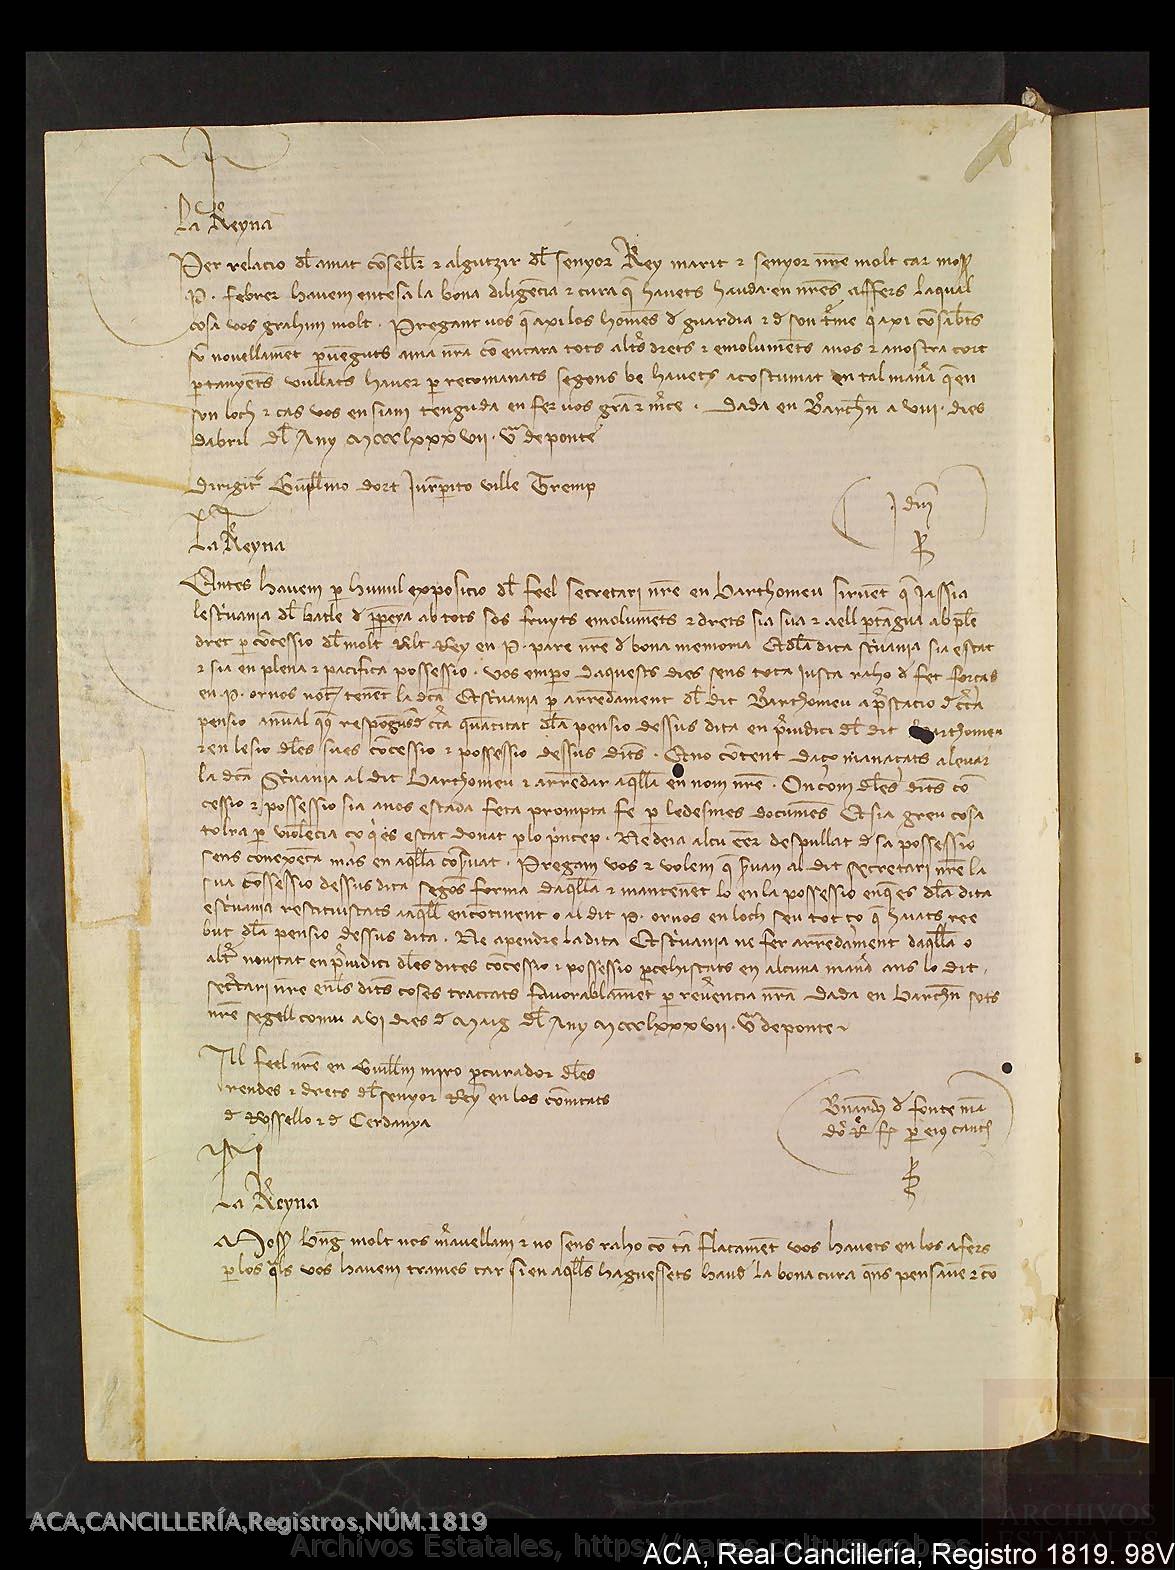 La Reyna
Per relacio dl amat conseller e algutzir dl senyor Rey marit e senyor nre molt car mossen
P. febrer havem entesa la bona diligencia e cura q havets hauda en nres affers laqual
cosa vos grahim molt. Pregant vos q axi los homes d guardia e d son tme
novellament pvenguts a ma nra com encara tots altres drets e emoluments a nos e a nostra cort
ptanyents vullats haver p recomanats segons be havets acostumat en tal manera q en
son loch e cas vos en siam tenguda en fer vos gra e mce. Dada en Barchn a VIII dies
dabril dl Any MCCCLXXXVII. de ponte
Dirigit Guillmo dort Jurpito ville Tremp
Idm
La Reyna
Entes havem p humil exposicio dl feel secretari nre en Barthomeu sirvent q ja ssia
lescrivania dl batle d Ppenya ab tots sos fruyts emoluments e drets sia sua e a ell ptangua ab ple
dret p concessio dl molt alt Rey en P. pare nre d bona memoria E dla dita scrivania sia estat
e sia en plena e pacifica possessio. Vos empo daquests dies sens tota justa raho d fet forçats
en P. ornos not tenent la dca Escrivania p arrendament dl dit Barthomeu a pstacio d cta
pensio annual q respongues d cta quantitat dla pensio dessus dita en piudici dl dit Barthomeu
e en lesio dles sues concessio e possessio dessus dites. E no content daço manacats a levar
la dca scrivania al dit Barthomeu e arrendar aqlla en nom nre. On com dles dits con
cessio e possessio sia a nos estada feta prompta fe p ledesmes documents E sia greu cosa
tolra p violencia ço q es estat donat p lo princep. Ne deia alcu eer despullat d sa possessio
sens conexença mas en aqlla conservat. Pregam vos e volem q servan al dit secretari nre la
sua concessio dessus dita segons forma daqlla e mantenent lo en la possessio en q es dla dita
escrivania restituiscats a aqll encontinent o al dit P. ornos en loch seu tot ço q hajats ree
but dla pensio dessus dita. Ne a pendre la dita Escrivania ne fer arrendament daqlla o
altra novitat en piudici dles dites concessio e possessio pcehiscats en alcuna manera ans lo dit
secretari nre en les dits coses tractats favorablament p reverencia nra Dada en Barchn sots
nre segell comu a VI dies d Maig dl Any MCCCLXXXVII. de ponte
Al feel nre en Guillm miro pcurador dles
rendes e drets dl senyor Rey en los comtats
d Rossello e d Cerdanya
Bnardus d fonte ma
p eius canc
La Reyna
Mossen Hung molt nos maravellam e no sens raho com tan flacament vos havets en los afers
p los qls vos havem trames car si en aqlls haguessets haud la bona cura qns pensavem e co